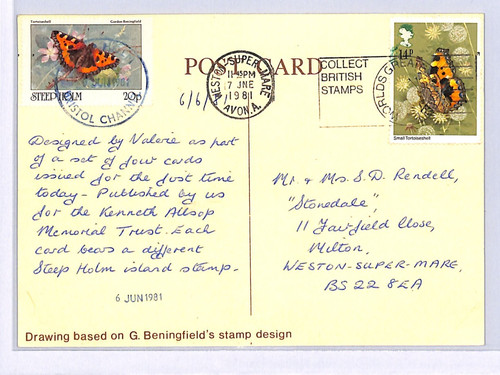 Tortoiseshell Gordon Beningfield
STEEP HOLM 20p
BRISTOL CHANNEL
POST CARD
6/6/
WESTON-SUPER-MARE
11-PM
7 JNE
1981
AVON.A.
COLLECT
BRITISH
STAMPS
WORLDS
14P
Small Tortoiseshell
Designed by Valerie as part
of a set of four cards
issued for the first time
today - Published by us
for the Kenneth Allsop
Memorial Trust. Each
card bears a different
Steep Holm island stamp.
6 JUN 1981
Mr. & Mrs. S.D. Rendell,
"Stonedale",
11 Fairfield Close,
Milton,
WESTON-SUPER-MARE,
BS22 8EA
Drawing based on G. Beningfield's stamp design